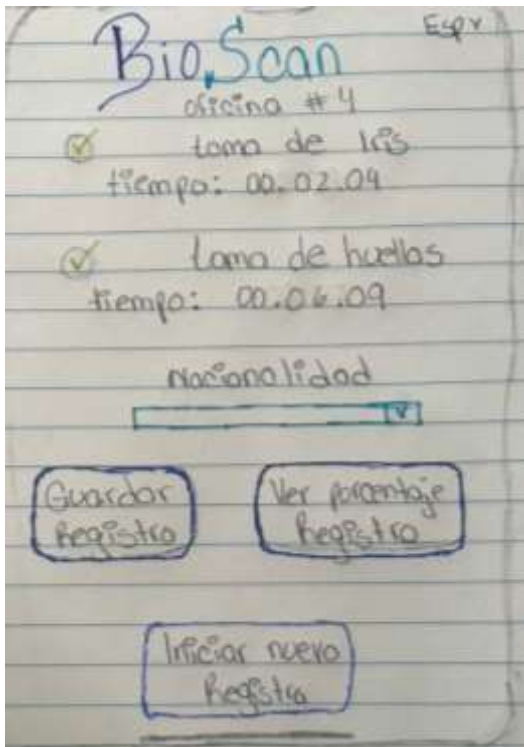 Esp v
Bio.Scan
oficina # 4
toma de Iris
tiempo: 00.02.09
toma de huellas
tiempo: 00.06.09
Nacionalidad
Guardar
Registro
Ver porcentaje
Registro
Iniciar nuevo
Registro